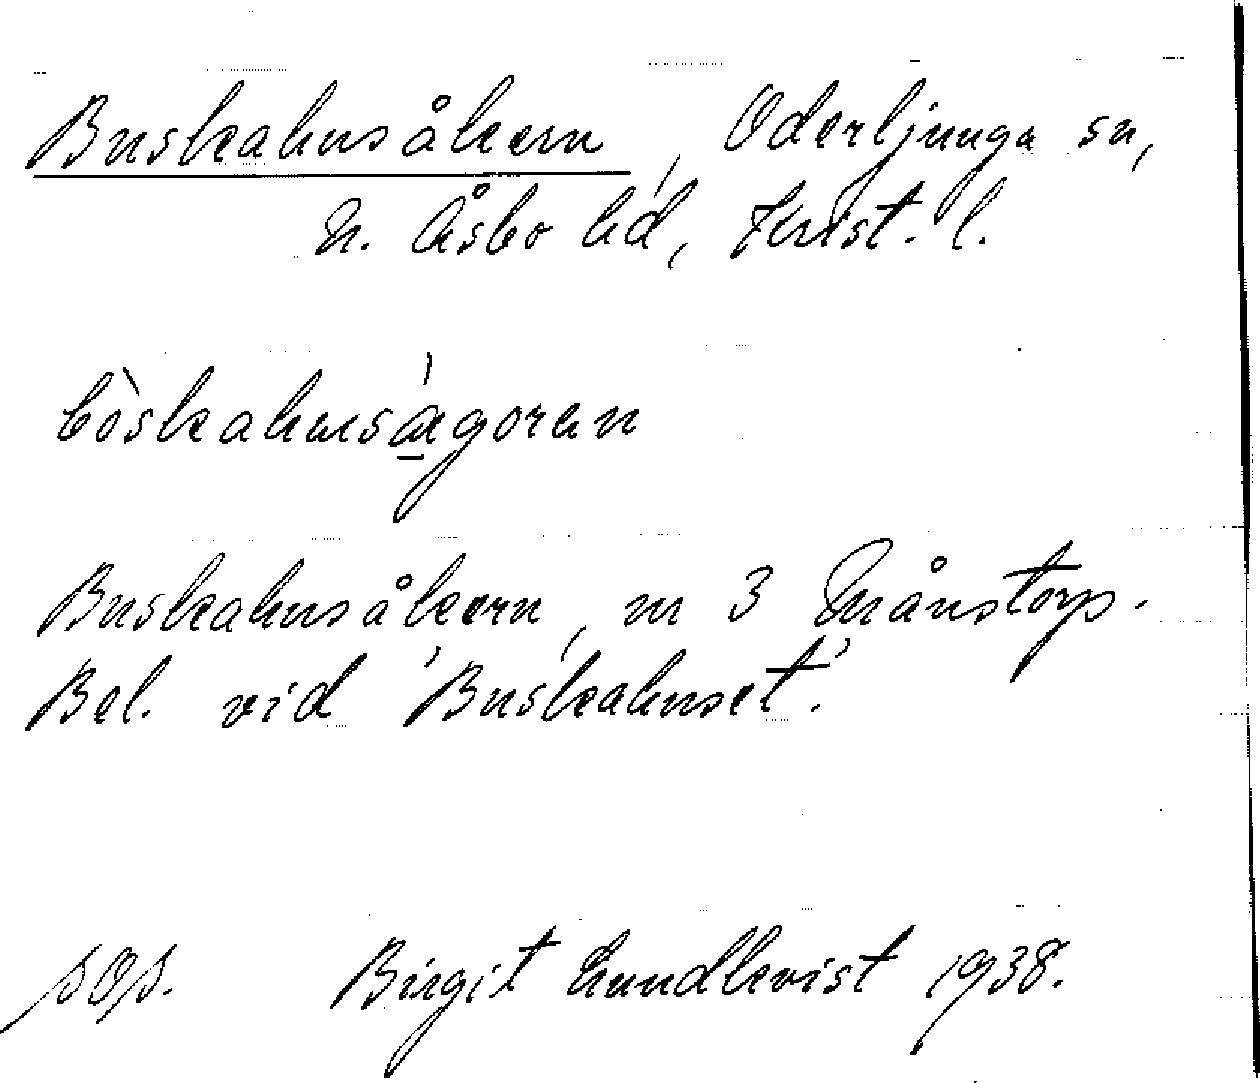 Buskahusåkern, Oderljunga sn,
N. Åsbo hd, Krist. l.
bòskahuságoran
Buskahusåkern, nr 3 Månstorp.
Bel. vid "Buskahuset".
Birgit Lundkvist 1938.